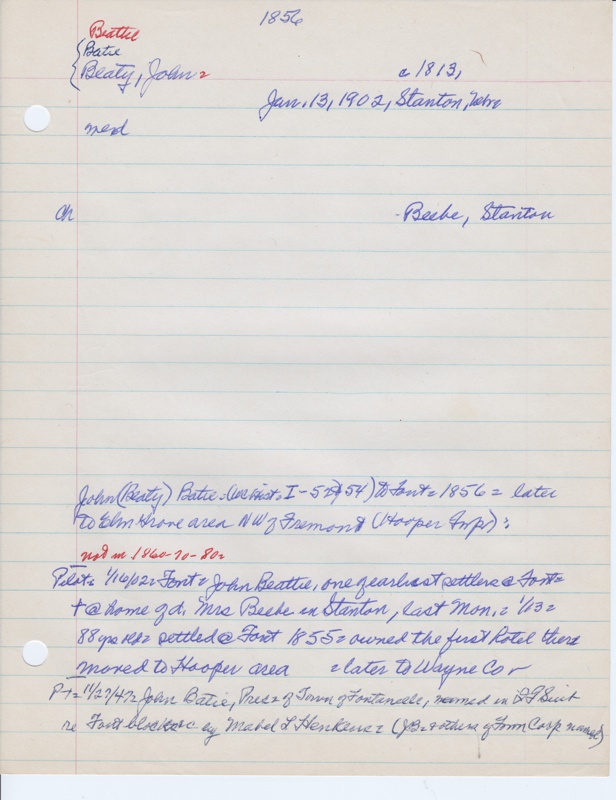 1856
Beattie
Batie
Beaty, John = c 1813,
Jan. 13, 1902, Stanton, Nebr
med
Ch Beebe, Stanton
John (Beaty) Batie - Hist. I - 52 54) to Font = 1856 = later
to Elm Grove area NW of Fremont (Hooper Twp) :
not in 1860-70-80 =
Pilot = 1/16/02 = Font = John Beattie, one of earliest settlers @ Font =
+ @ home of d. Mrs Beebe in Stanton, last Mon. = 1/13 =
88 yrs old = settled @ Font 1855 = owned the first hotel there
moved to Hooper area = later to Wayne Co
PT = 11/27/47 = John Batie, Pres = of Town of Fontanelle, named in
re Font by Mabel L Henkens = (JB = + others of Town Corp named)